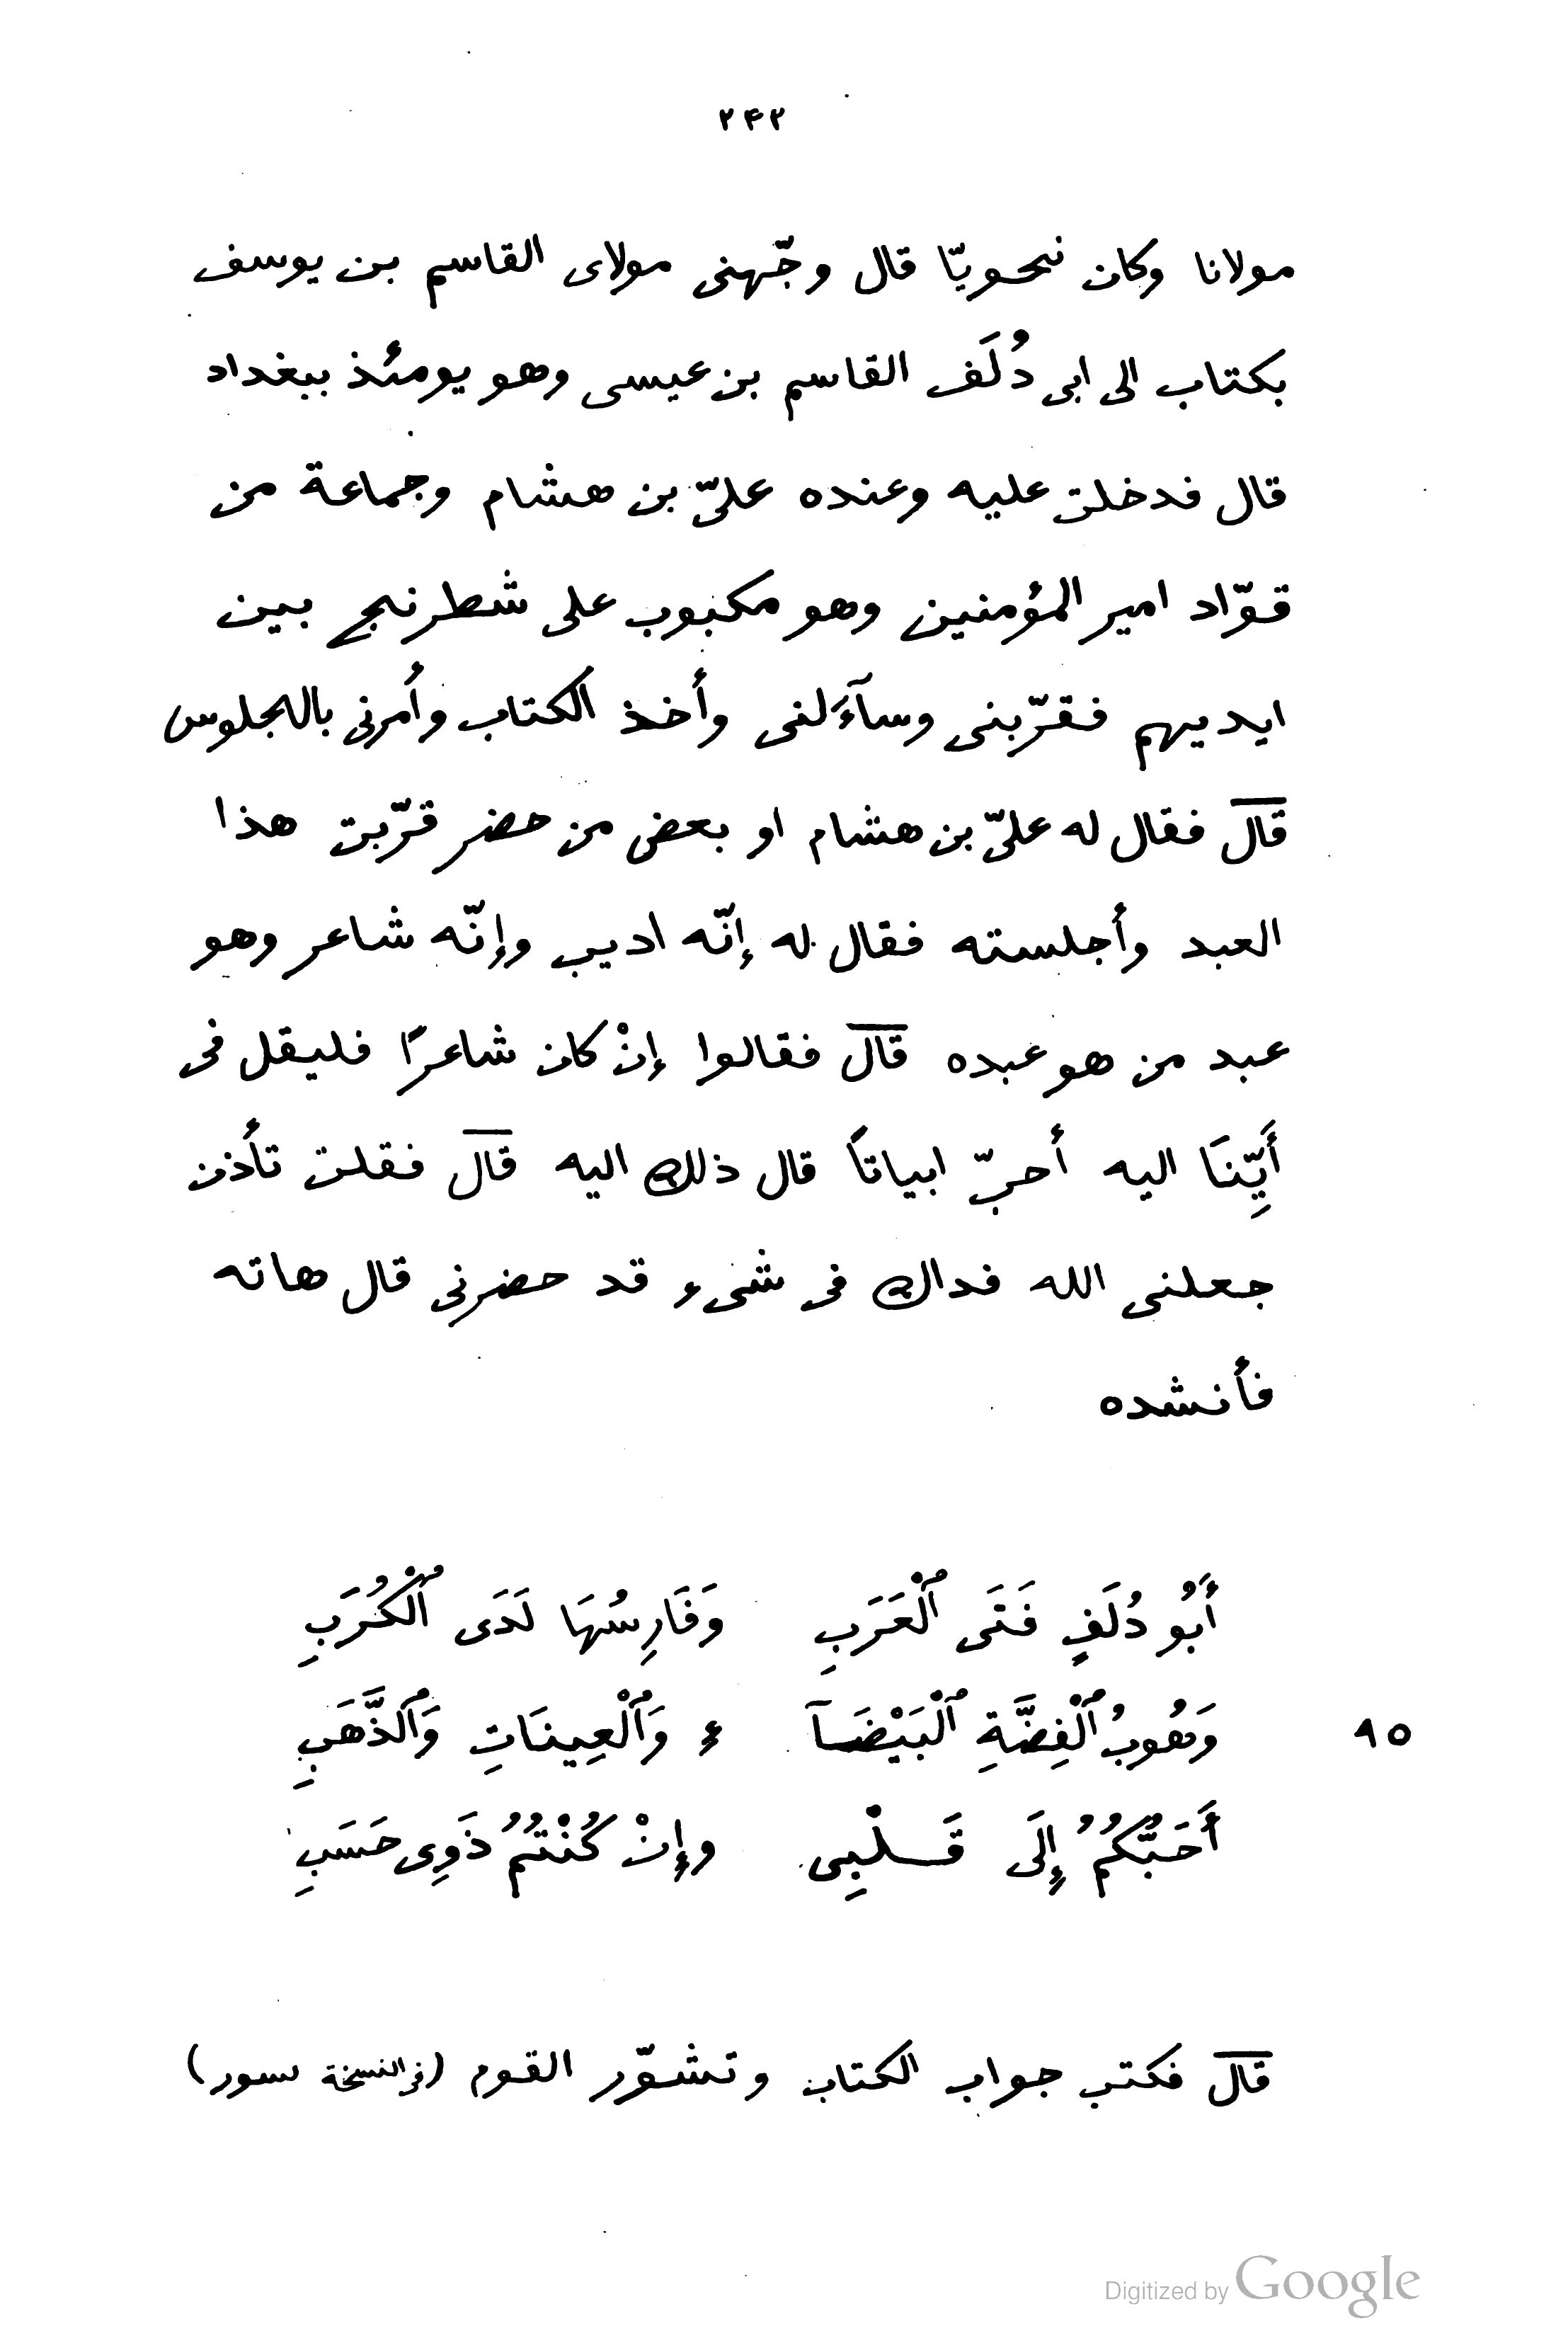 ٢٤٢
مولانا وكان نحويّا قال وجّهنى مولاى القاسم بن يوسف
بكتاب الى ابى دُلَف القاسم بن عيسى وهو يومئذ ببغداد
قال فدخلت عليه وعنده علىّ بن هشام وجماعة من
قوّاد امير المؤمنين وهو مكبوب على شطرنج بين
ايديهم فقرّبنى وسآءَلنى وأخذ الكتاب وأمرنى بالجلوس
قال فقال له علىّ بن هشام او بعض من حضر قرّبت هذا
العبد وأجلسته فقال له إنّه اديب وإنّه شاعر وهو
عبد من هو عبده قال فقالوا إنْ كان شاعرًا فليقل فى
أَيِّنَا اليه أحبّ ابياتاً قال ذلك اليه قال فقلت تأذن
جعلنى الله فداك فى شىء قد حضرنى قال هاته
فأنشده
أَبُو دُلَفٍ فَتَى ٱلْعَرَبِ وَفَارِسُهَا لَدَى ٱلْكُرَبِ
وَهُوبُ ٱلْفِضَّةِ ٱلْبَيْضَآ ءِ وَٱلْعِينَاتِ وَٱلذَّهَبِ ١٥
أَحَبُّكُمُ إِلَى قَلْبِى وإِنْ كُنْتُمُ ذَوِى حَسَبِ
قال فكتب جواب الكتاب وتشوّر القوم (فى النسخة سور)
Digitized by Google